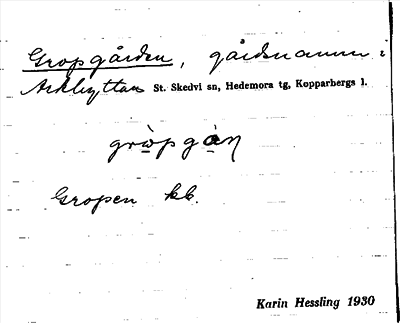 Gropgården, gårdsnamn i
Arkhyttan St. Skedvi sn, Hedemora tg, Kopparbergs l.
Gropen kb.
Karin Hessling 1930